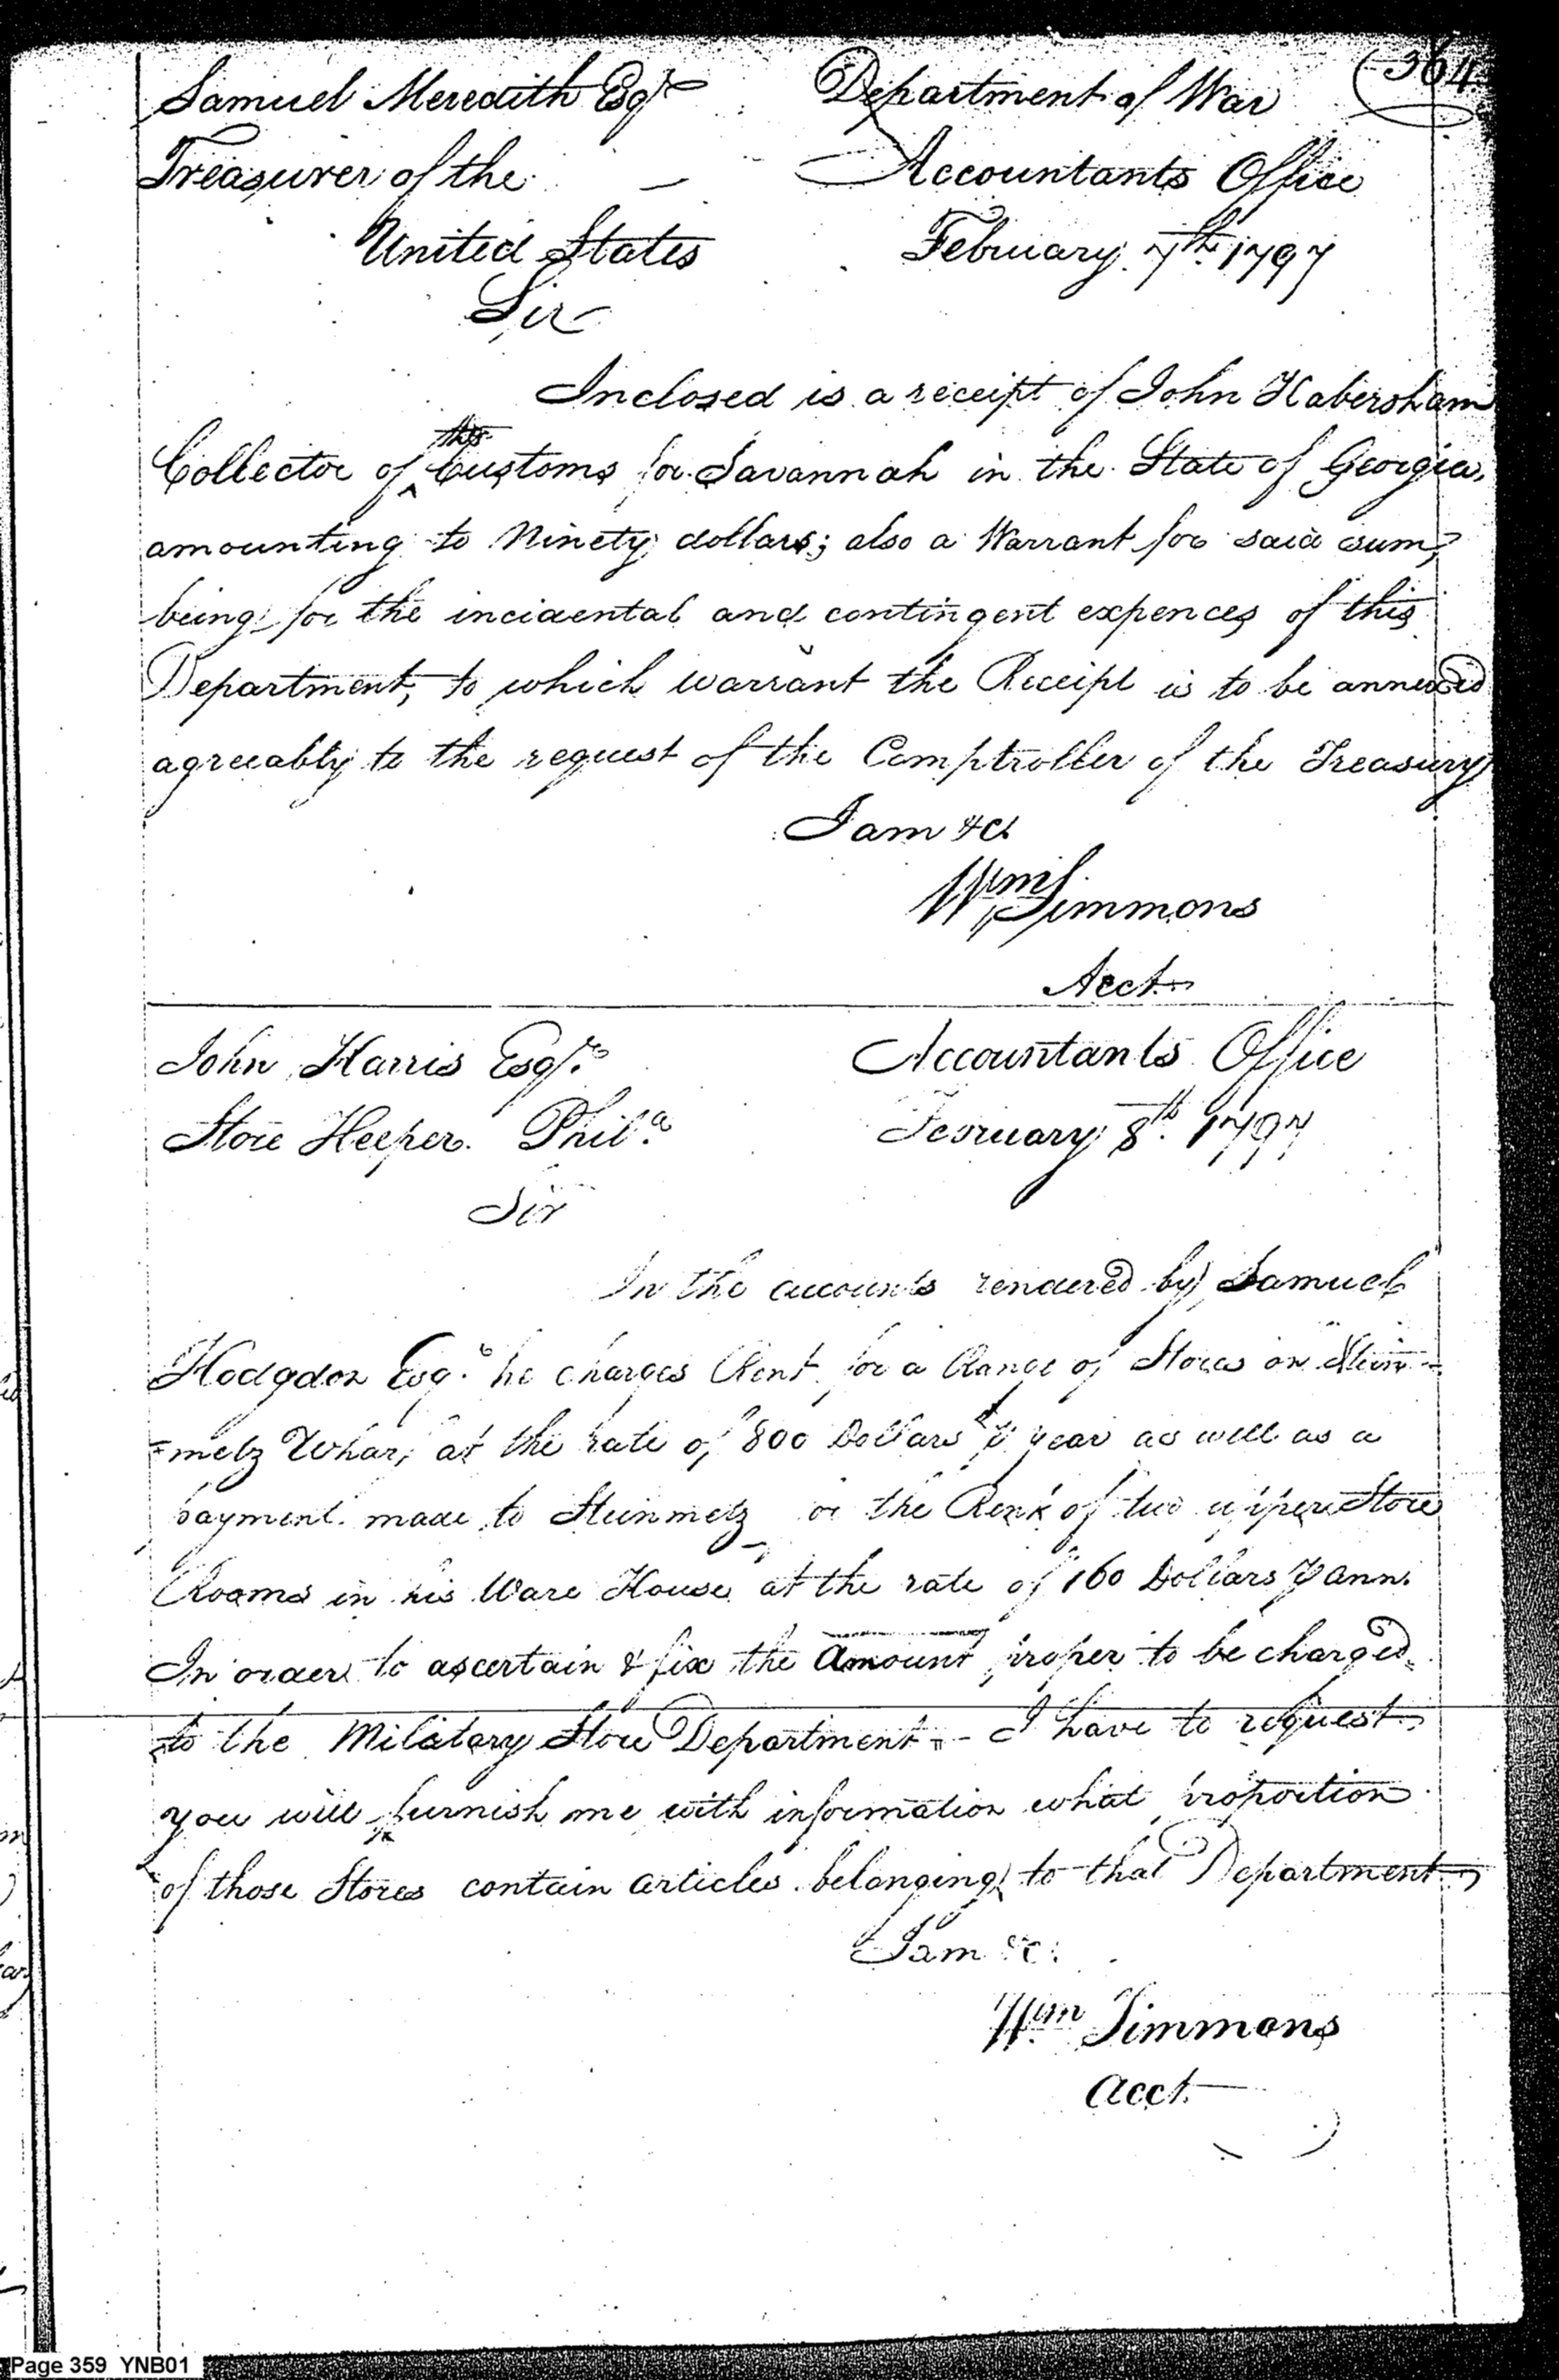 364
Samuel Meredith Esqr Department of War
Treasurer of the — Accountants Office
United States February 7th 1797
Sir
Inclosed is a receipt of John Habersham
the
Collector of ^ Customs for Savannah in the State of Georgia,
amounting to Ninety dollars; also a Warrant for said sum,
being for the incidental and contingent expences of this
Department, to which warrant the Receipt is to be annexed
agreeably to the request of the Comptroller of the Treasury
I am &c
Wm Simmons
Acct
John Harris Esqr. Accountants Office
Store Keeper. Phila. February 8th. 1797
Sir
In the accounts rendered by Samuel
Hodgdon Esqr. he charges Rent for a Range of Stores on Stein-
=metz Wharf at the rate of 800 Dollars ⅌ year as well as a
payment made to Steinmetz for the Rent of two upper Store
Rooms in his Ware House at the rate of 160 Dollars ⅌ ann.
In order to ascertain & fix the amount proper to be charged
to the Military Store Department - I have to request
you will furnish me with information what proportion
of those Stores contain articles belonging to that Department,
I am &c.
Wm Simmons
Acct
Page 359 YNB01